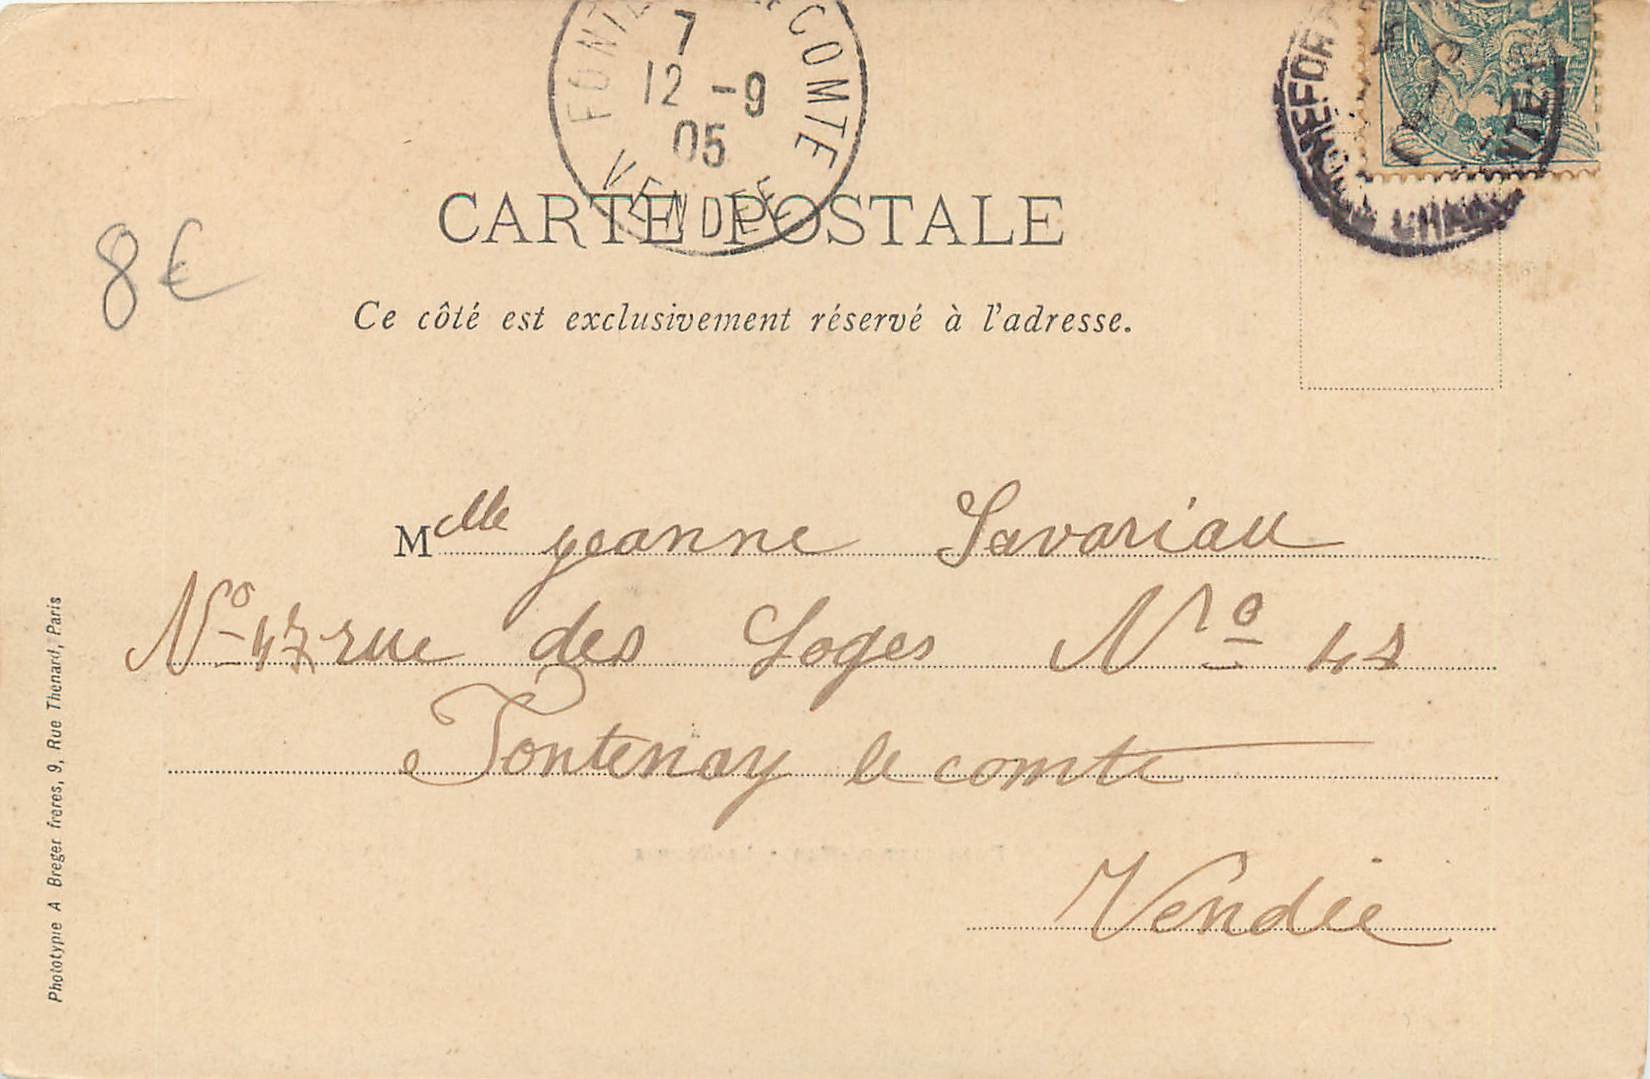 7
12 -9
05
COMTE
VENDÉE
CARTE POSTALE
8€
Ce côté est exclusivement réservé à l'adresse.
Mlle Jeanne Savariau
No 47 rue des Loges No 47
Fontenay le comte
Vendée
Phototypie A Breger freres, 9, Rue Thenard, Paris